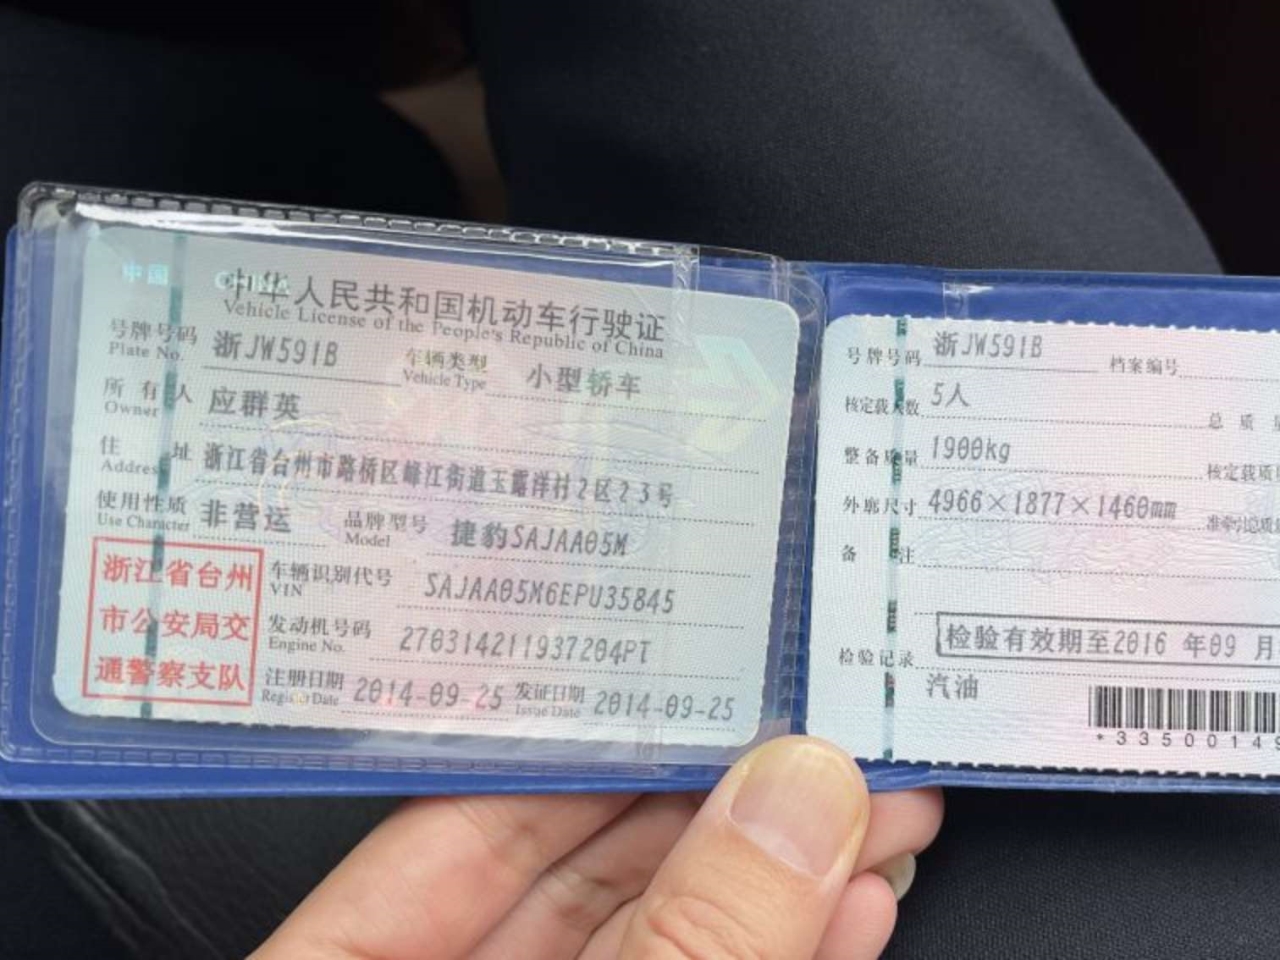 中国 CHINA
中华人民共和国机动车行驶证
Vehicle License of the People's Republic of China
号牌号码 浙JW591B 车辆类型 小型轿车
Plate No. Vehicle Type
所有人 应群英
Owner
住址 浙江省台州市路桥区峰江街道玉露洋村2区23号
Address
使用性质 非营运 品牌型号 捷豹SAJAA05M
Use Character Model
浙江省台州
市公安局交
通警察支队
车辆识别代号 SAJAA05M6EPU35845
VIN
发动机号码 270314211937204PT
Engine No.
注册日期 2014-09-25 发证日期 2014-09-25
Register Date Issue Date
号牌号码 浙JW591B 档案编号
核定载人数 5人 总质量
整备质量 1900kg 核定载质
外廓尺寸 4966×1877×1460mm 准牵引总质
备注
检验有效期至2016年09月
检验记录
汽油
*3350014